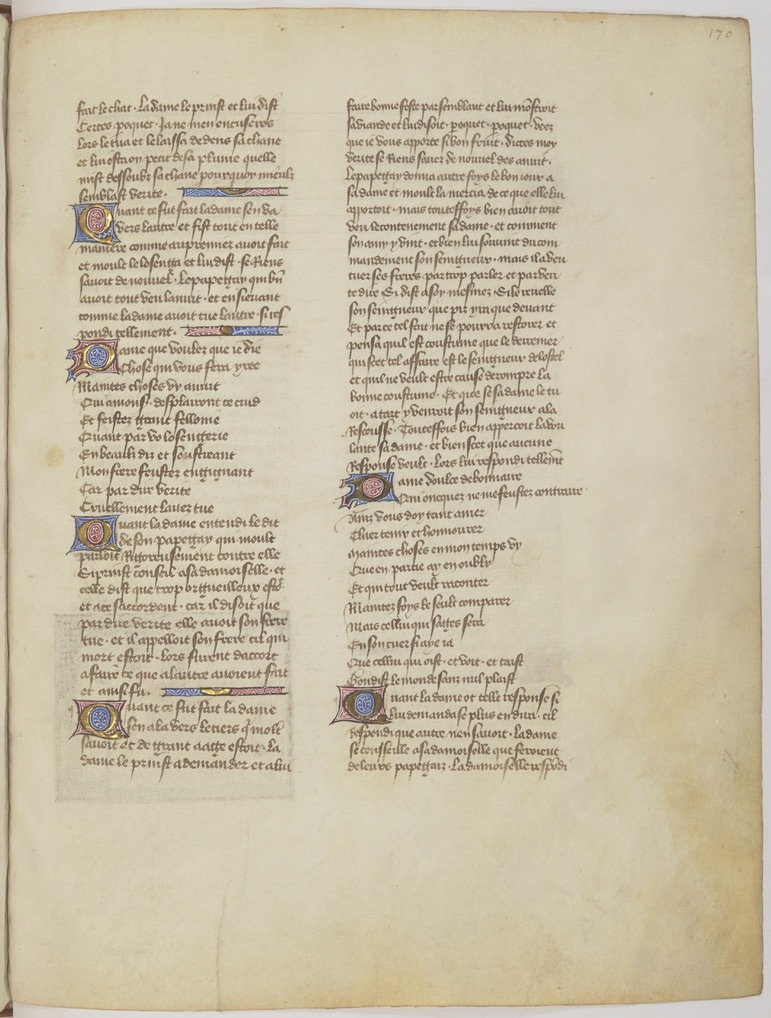 170
fait le chat · La dame le prinst et lui dist
Certes poquet · Ja ne men encuseres
Lors le tua et le laissa dedens sa chane
et lui osta un petit de sa plume quelle
mist dessoubz sa chane pourquoy mieulx
semblast verite ·
Quant ce fut fait la dame sen va
vers lautre et fist tout en telle
maniere comme au premier avoit fait
et moult le losenga et lui dist · se Riens
savoit de nouvel · Le papegay qui bn
avoit tout veu la nuit · et en sievant
comme la dame avoit tue lautre · si res
pondi tellement ·
Dame que voulez que ie die
Chose qui vous fera yree
Maintes choses vy anuit
Qui a mous · desplairont ce cuid
Et feistez grant fellonie
Quant par vo losengerie
En beaulx diz et soustreant
Mon frere feustez engignant
Car par dire verite
Cruellement lavez tue
Quant la dame entendi le dit
de son papegay qui moult
parloit Rigoreusement contre elle
Si prinst conseil a sa damoiselle · et
celle dist que trop orguelleux estoit
et a ce saccordent · car il disoit que
par dire verite elle avoit son frere
tue · et il appelloit son frere cil qui
mort estoit · lors furent daccort
a faire ce que a lautre avoient fait
et ainsi fu ·
Quant ce fut fait la dame
sen ala vers le tiers q molt
savoit et de grant aage estoit · La
dame le prinst a demander et a lui
faire bonne feste par semblant et lui monstroit
sa viande et lui disoit · poquet · poquet · veez
que ie vous apporte si bon fruit · dictes moy
verite se Riens savez de nouvel des anuit ·
Le papegay donna autre foys le bon iour a
sa dame et moult la mercia de ce que elle lui
apportoit · mais touteffoys bien avoit tout
veu le contenement sa dame · et comment
son amy y vint · et bien lui souvint du com
mandement son seigneur · mais il a veu
tuer ses freres par trop parler et par veri
te dire Si dist a soy mesmez · Si le revelle
son seigneur que pis yra que devant
Et par ce tel fait ne se pourra restorer et
pensa quil est coustume que le derremier
qui scet tel affaire est le seigneur de lostel
et quil ne veult estre cause de rompre la
bonne coustume · Et que se sa dame le tu
oit · a tart y venroit son seigneur a la
Rescousse · Touteffois bien appercoit la vou
lante sa dame · et bien scet que aucune
Response veult · Lors lui respondi tellemt
Dame doulce debonnaire
Qui oncquez ne me feustez contraire
Ainz vous doy tant amer
Chier tenir et honnourer
Maintes choses en mon temps vy
Que en partie ay en oubly
Et qui tout veult raconter
Maintez foys le fault comparer
Mais cellui qui sages sera
En son cuer si aye ia
Que cellui qui oist · et voit · et taist
Condist le monde sanz nul plaist
Quant la dame ot telle response si
lui demanda se plus en diroit · cil
Respondi que autre nen savoit · La dame
se conseille a sa damoiselle que feroient
de leurs papegaiz · La damoiselle respondi